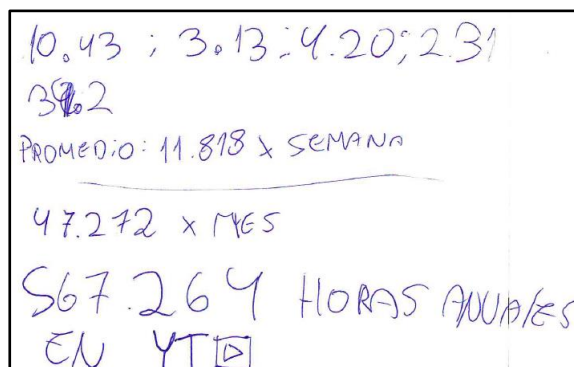 10.43 ; 3.13 ; 4.20 ; 2.31
PROMEDIO: 11.818 x SEMANA
47.272 x MES
567.264 HORAS ANUALES
EN YT